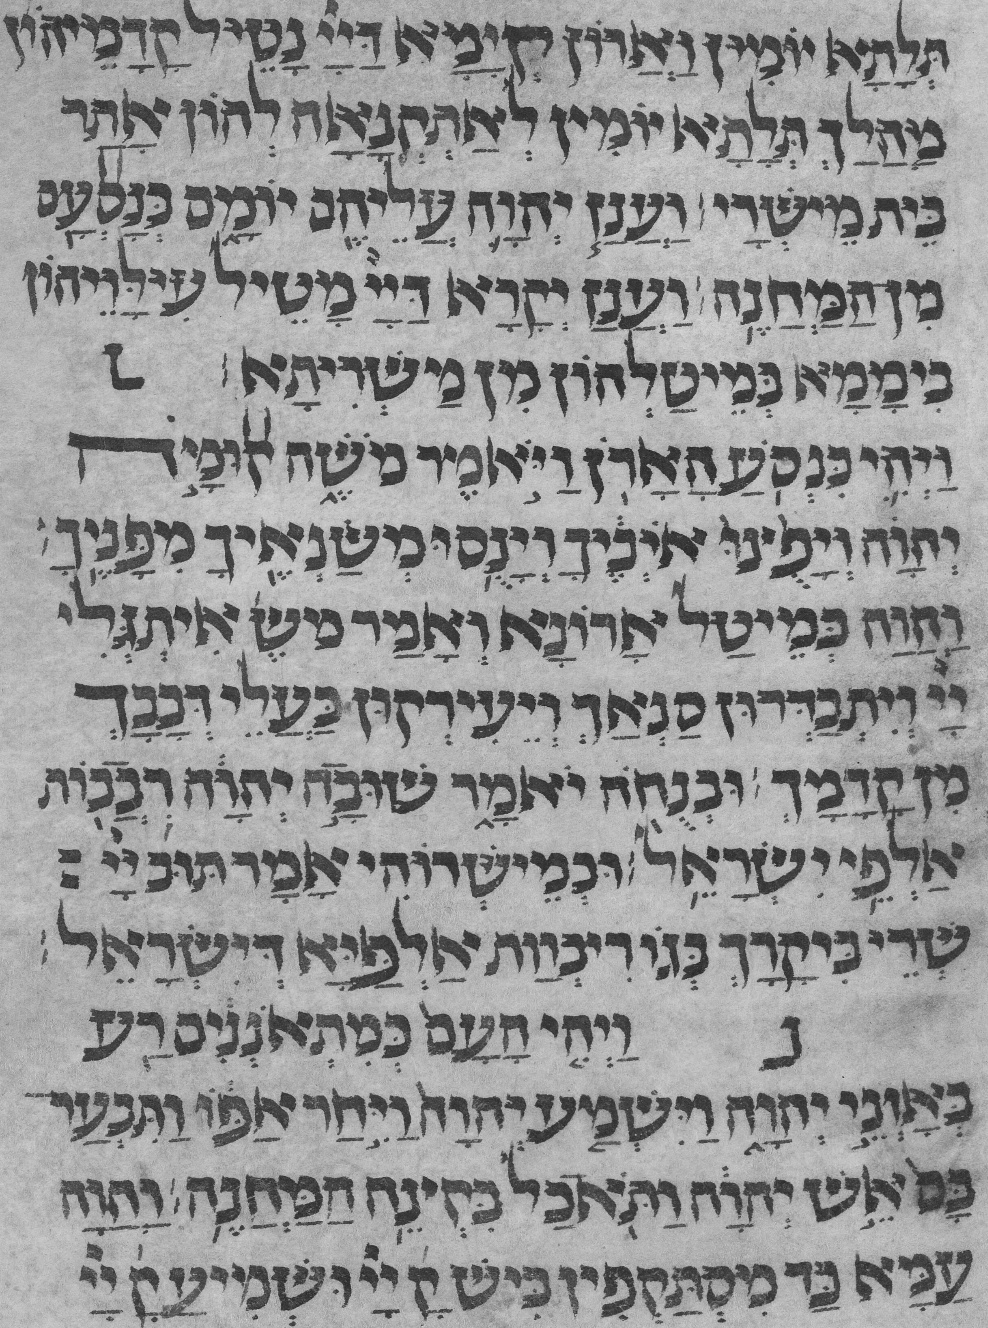 תְּלָתָא יוֹמִין וַאֲרוֹן קְיָימָא דַּיְיָ נָטֵיל קֳדָמֵיהוֹן
מַהֲלַךְ תְּלָתָא יוֹמִין לְאַתְקָנָאָה לְהוֹן אֲתַר
בֵּית מֵישְׁרֵי וַעֲנַן יְהוָה עֲלֵיהֶם יוֹמָם בְּנָסְעָם
מִן הַמַּחֲנֶה וַעֲנַן יְקָרָא דַּיְיָ מַטֵיל עִילָּוֵיהוֹן
בִּימָמָא בְּמֵיטַלְהוֹן מִן מַישְׁרִיתָא ׆
וַיְהִי בִּנְסֹעַ הָאָרֹן וַיֹּאמֶר מֹשֶׁה קוּמָה
יְהוָה וְיָפֻצוּ אֹיְבֶיךָ וְיָנֻסוּ מְשַׂנְאֶיךָ מִפָּנֶיךָ
וַהֲוָה בְּמֵיטַל אֲרוֹנָא וְאָמַר מֹשֶׁ אִיתְגְּלִי
יְיָ וְיִתְבַּדְּרוּן סַנְאָךְ וְיֵעִירְקוּן בַּעֲלֵי דְּבָבָךְ
מִן קֳדָמָךְ וּבְנֻחֹה יֹאמַר שׁוּבָה יְהוָה רִבֲבוֹת
אַלְפֵי יִשְׂרָאֵל וּבְמֵישְׁרוֹהִי אָמַר תּוּב יְיָ
שְׁרֵי בִּיקָרָךְ בְּגוֹ רִיבְוָות אַלְפַיָּא דְּיִשְׂרָאֵל
׆ וַיְהִי הָעָם כְּמִתְאֹנְנִים רַע
בְּאָזְנֵי יְהוָה וַיִּשְׁמַע יְהוָה וַיִּחַר אַפּוֹ וַתִּבְעַר
בָּם אֵשׁ יְהוָה וַתֹּאכַל בִּקְצֵה הַמַּחֲנֶה וַהֲוָה
עַמָּא כַּד מִסְתַּקְפִין בִּישׁ קֳ יְיָ וּשְׁמִיעַ קֳ יְיָ